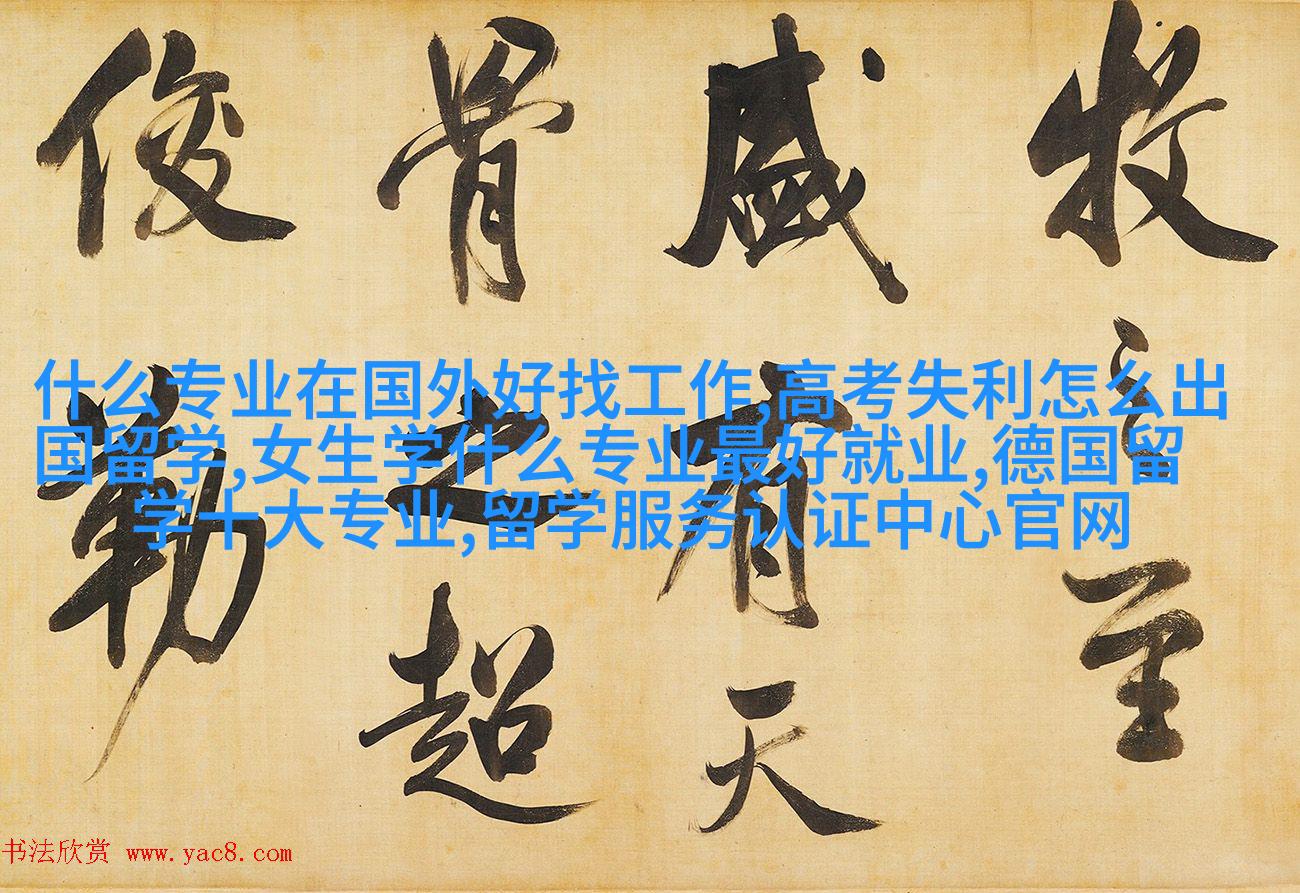 牧之至
盛有天
骨之超
俊勒
什么专业在国外好找工作,高考失利怎么出
国留学,女生学什么专业最好就业,德国留
学十大专业,留学服务认证中心官网
书法欣赏 www.yac8.com